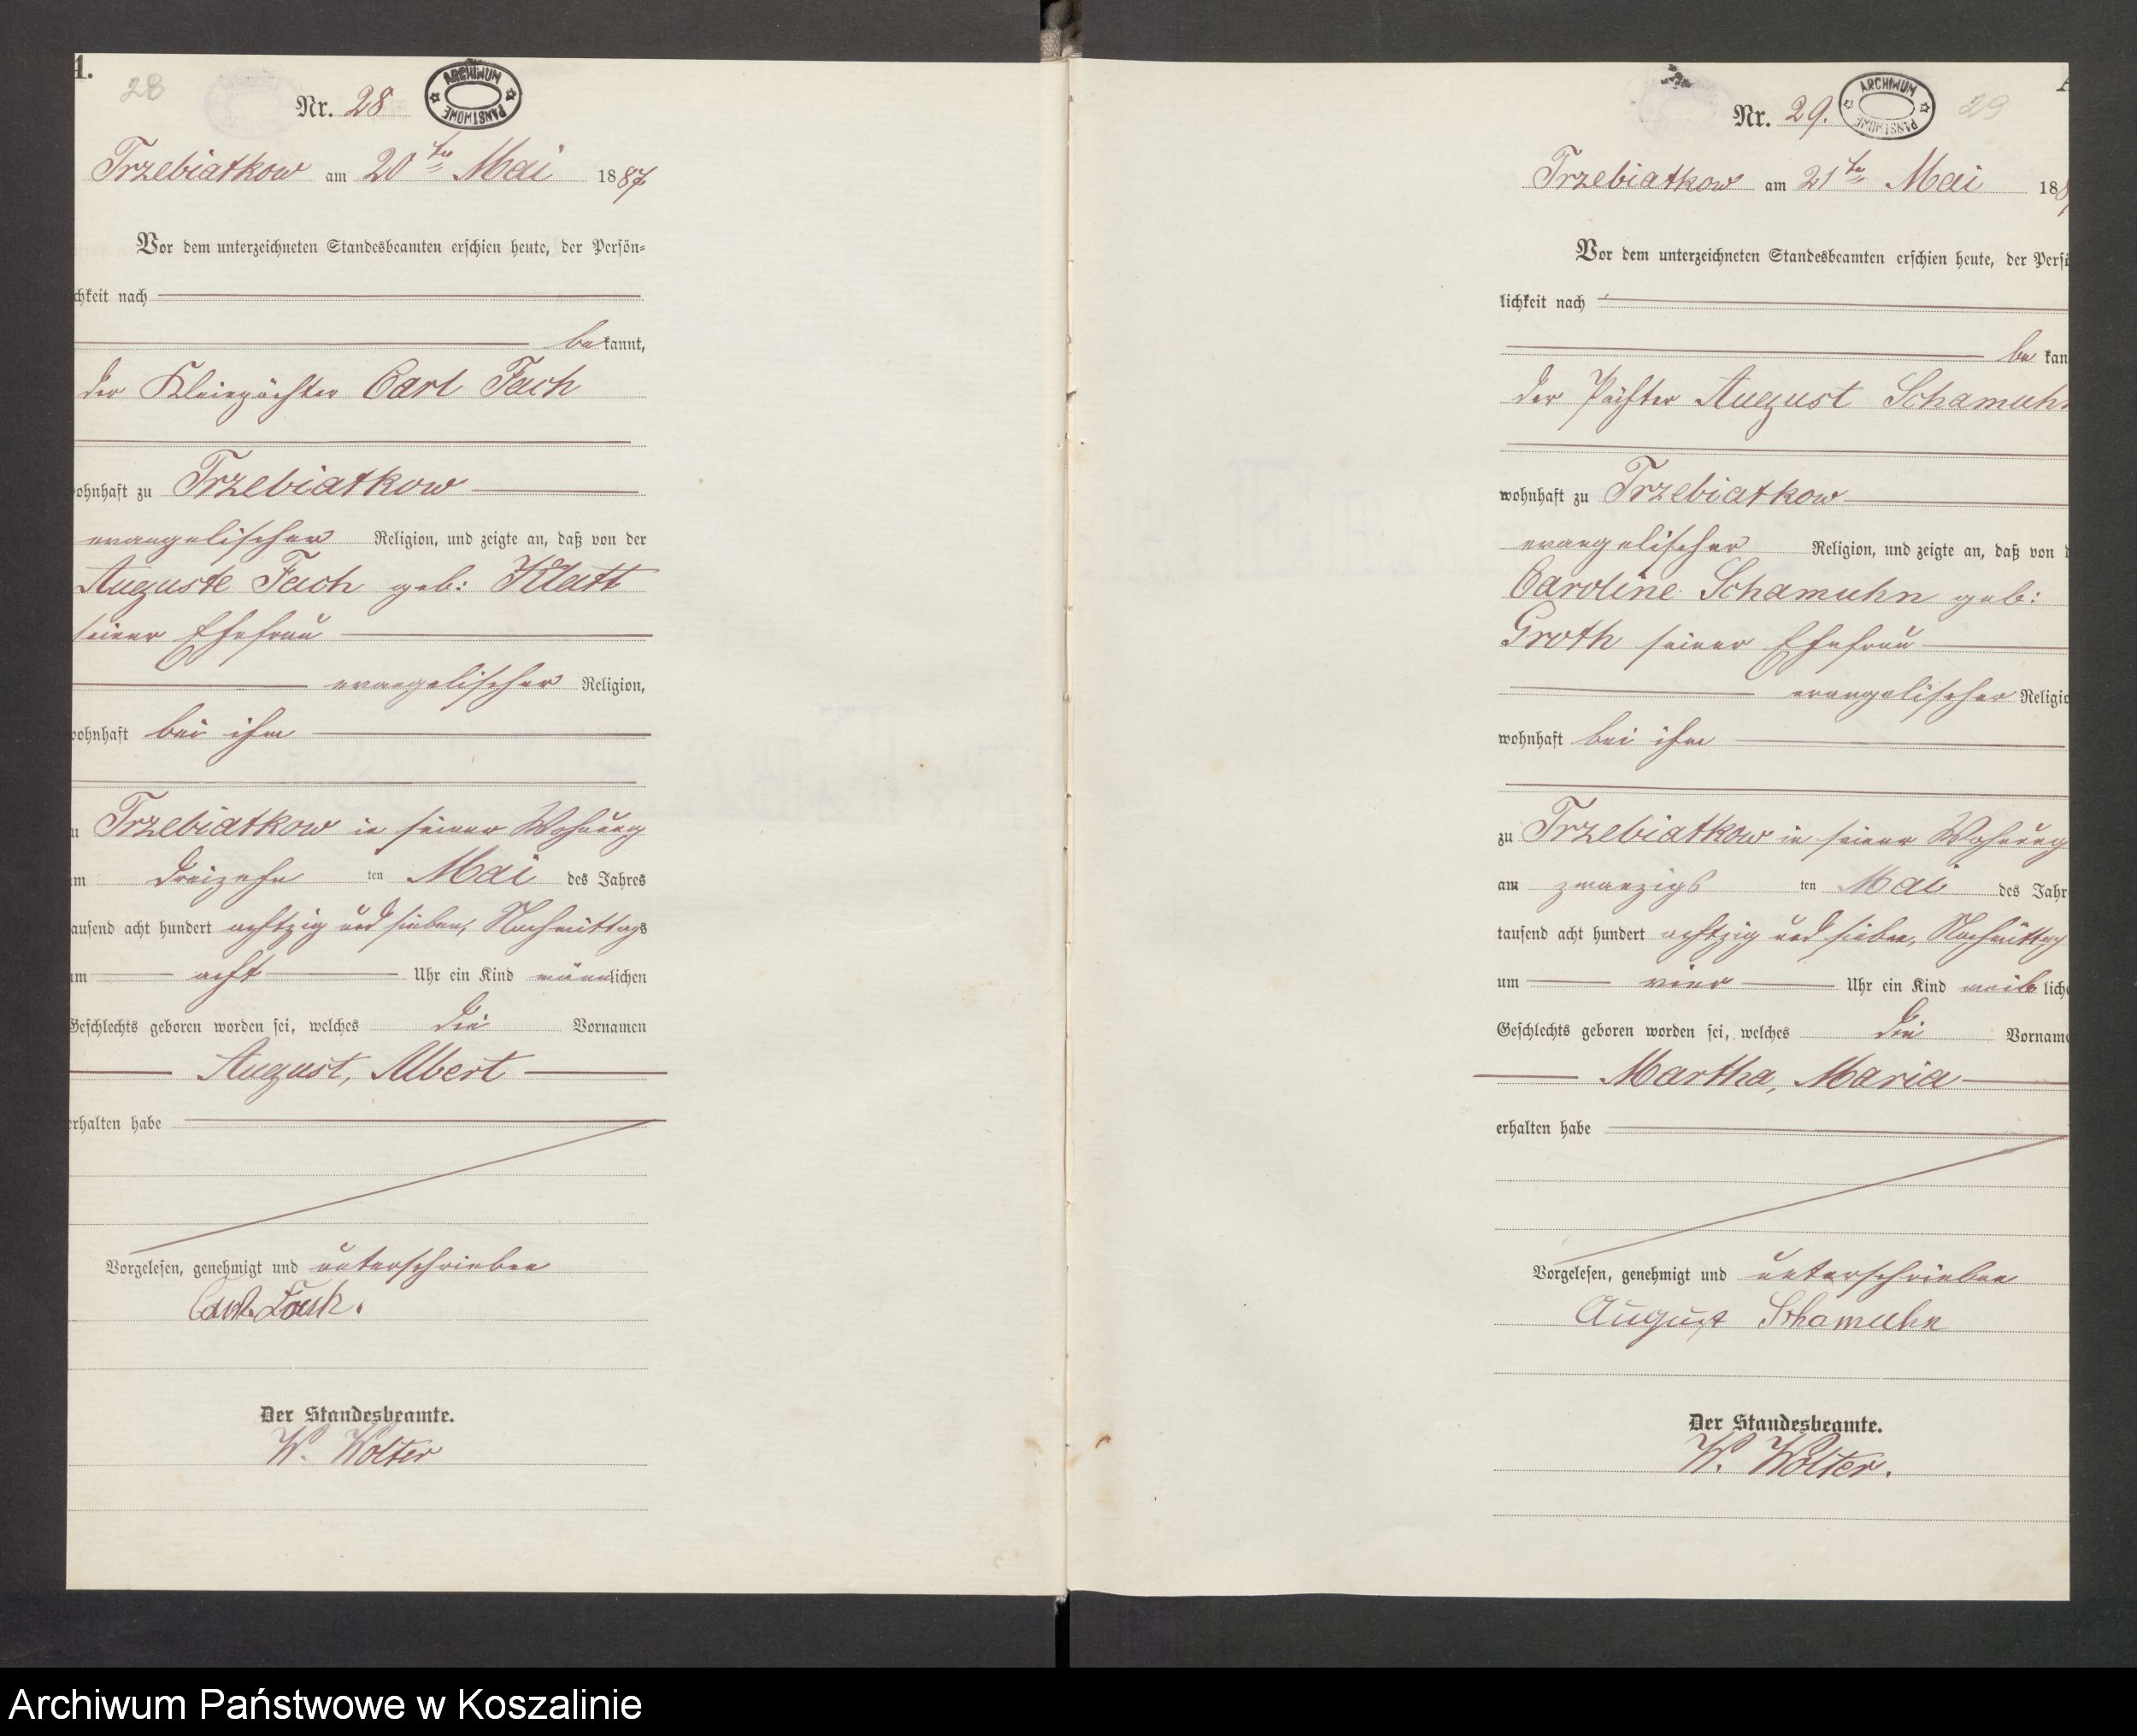 1.
28
Nr. 28
ARCHIWUM PAŃSTWOWE
Trzebiatkow am 20ten Mai 1887
Vor dem unterzeichneten Standesbeamten erschien heute, der Persön-
chkeit nach
bekannt,
der Kleinpächter Carl Fach
ohnhaft zu Trzebiatkow
evangelischer Religion, und zeigte an, daß von der
Auguste Fach geb: Klatt
seiner Ehefrau
evangelischer Religion,
ohnhaft bei ihm
u Trzebiatkow in seiner Wohnung
m dreizehn ten Mai des Jahres
ausend acht hundert achtzig und sieben, Nachmittags
um acht Uhr ein Kind männlichen
Geschlechts geboren worden sei, welches die Vornamen
August, Albert
erhalten habe
Vorgelesen, genehmigt und unterschrieben
Carl Fach.
Der Standesbeamte.
W. Wolter
Nr. 29.
ARCHIWUM PAŃSTWOWE
29
Trzebiatkow am 21ten Mai 188
Vor dem unterzeichneten Standesbeamten erschien heute, der Persö
lichkeit nach
bekan
der Pächter August Schamuhn
wohnhaft zu Trzebiatkow
evangelischer Religion, und zeigte an, daß von d
Caroline Schamuhn geb:
Groth seiner Ehefrau
evangelischer Religio
wohnhaft bei ihm
zu Trzebiatkow in seiner Wohnung
am zwanzigs ten Mai des Jahr
tausend acht hundert achtzig und sieben, Nachmittag
um vier Uhr ein Kind weibliche
Geschlechts geboren worden sei, welches die Vorname
Martha, Maria
erhalten habe
Vorgelesen, genehmigt und unterschrieben
August Schamuhn
Der Standesbeamte.
W. Wolter.
Archiwum Państwowe w Koszalinie